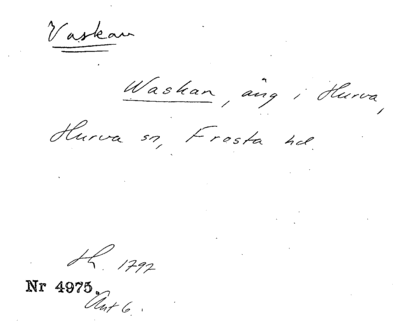 Vaskan
Waskan, äng i Hurva,
Hurva sn, Frosta hd.
1797
Nr 4975.
Akt 6.